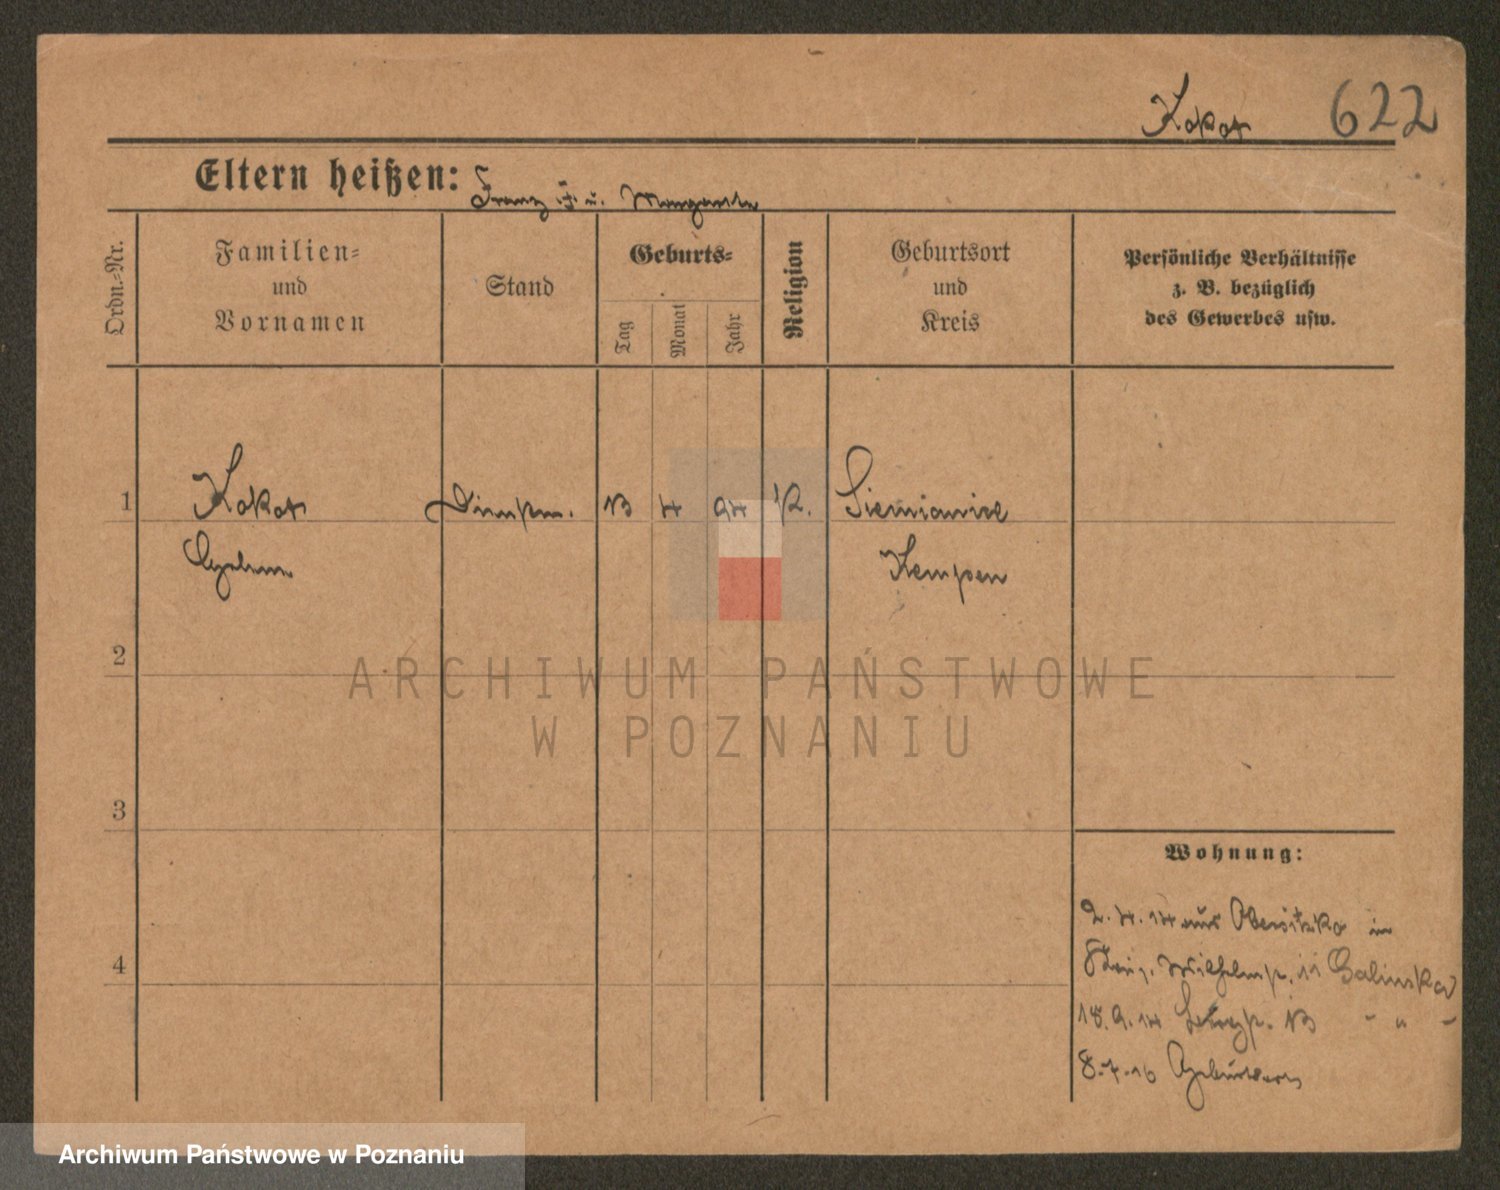 Kokot 622
Eltern heißen: Franz † u. Margareta
Ordn.=Nr.
Familien=
und
Vornamen
Stand
Geburts=
Tag
Monat
Jahr
Religion
Geburtsort
und
Kreis
Persönliche Verhältnisse
z. B. bezüglich
des Gewerbes usw.
1 Kokot 13 4 94 K. Siemianice
Kempen
2
3
4
ARCHIWUM PAŃSTWOWE
W POZNANIU
Wohnung:
2. 4. 14 aus Obersitzko in
Wilhelmpl. 11 Galinska
18. 9. 14 13 - " -
8. 7. 16 Geburtsort
Archiwum Państwowe w Poznaniu